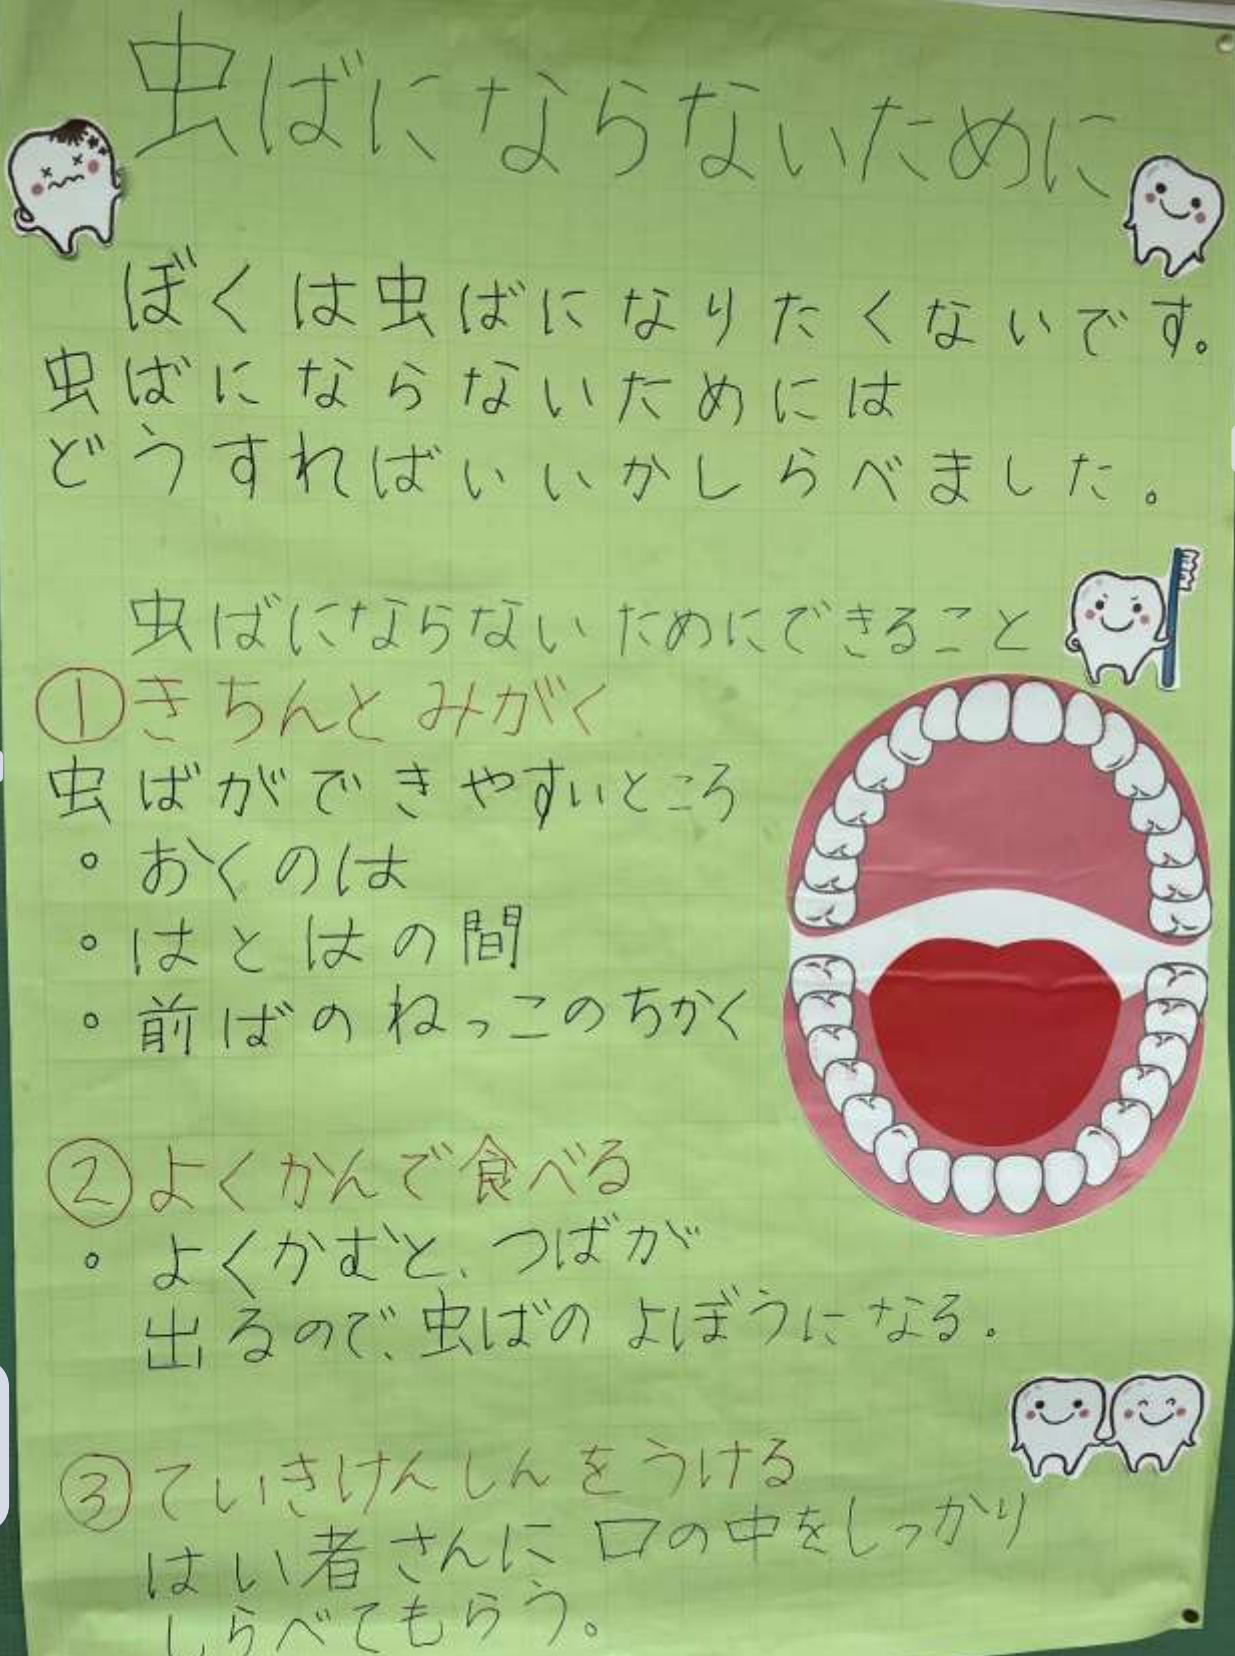 虫ばにならないために
ぼくは虫ばになりたくないです。
虫ばにならないためには
どうすればいいかしらべました。
虫ばにならないためにできること
①きちんとみがく
虫ばができやすいところ
・おくのは
・はとはの間
・前ばのねっこのちかく
②よくかんで食べる
・よくかむと、つばが
出るので、虫ばのよぼうになる。
③ていきけんしんをうける
はい者さんに口の中をしっかり
しらべてもらう。